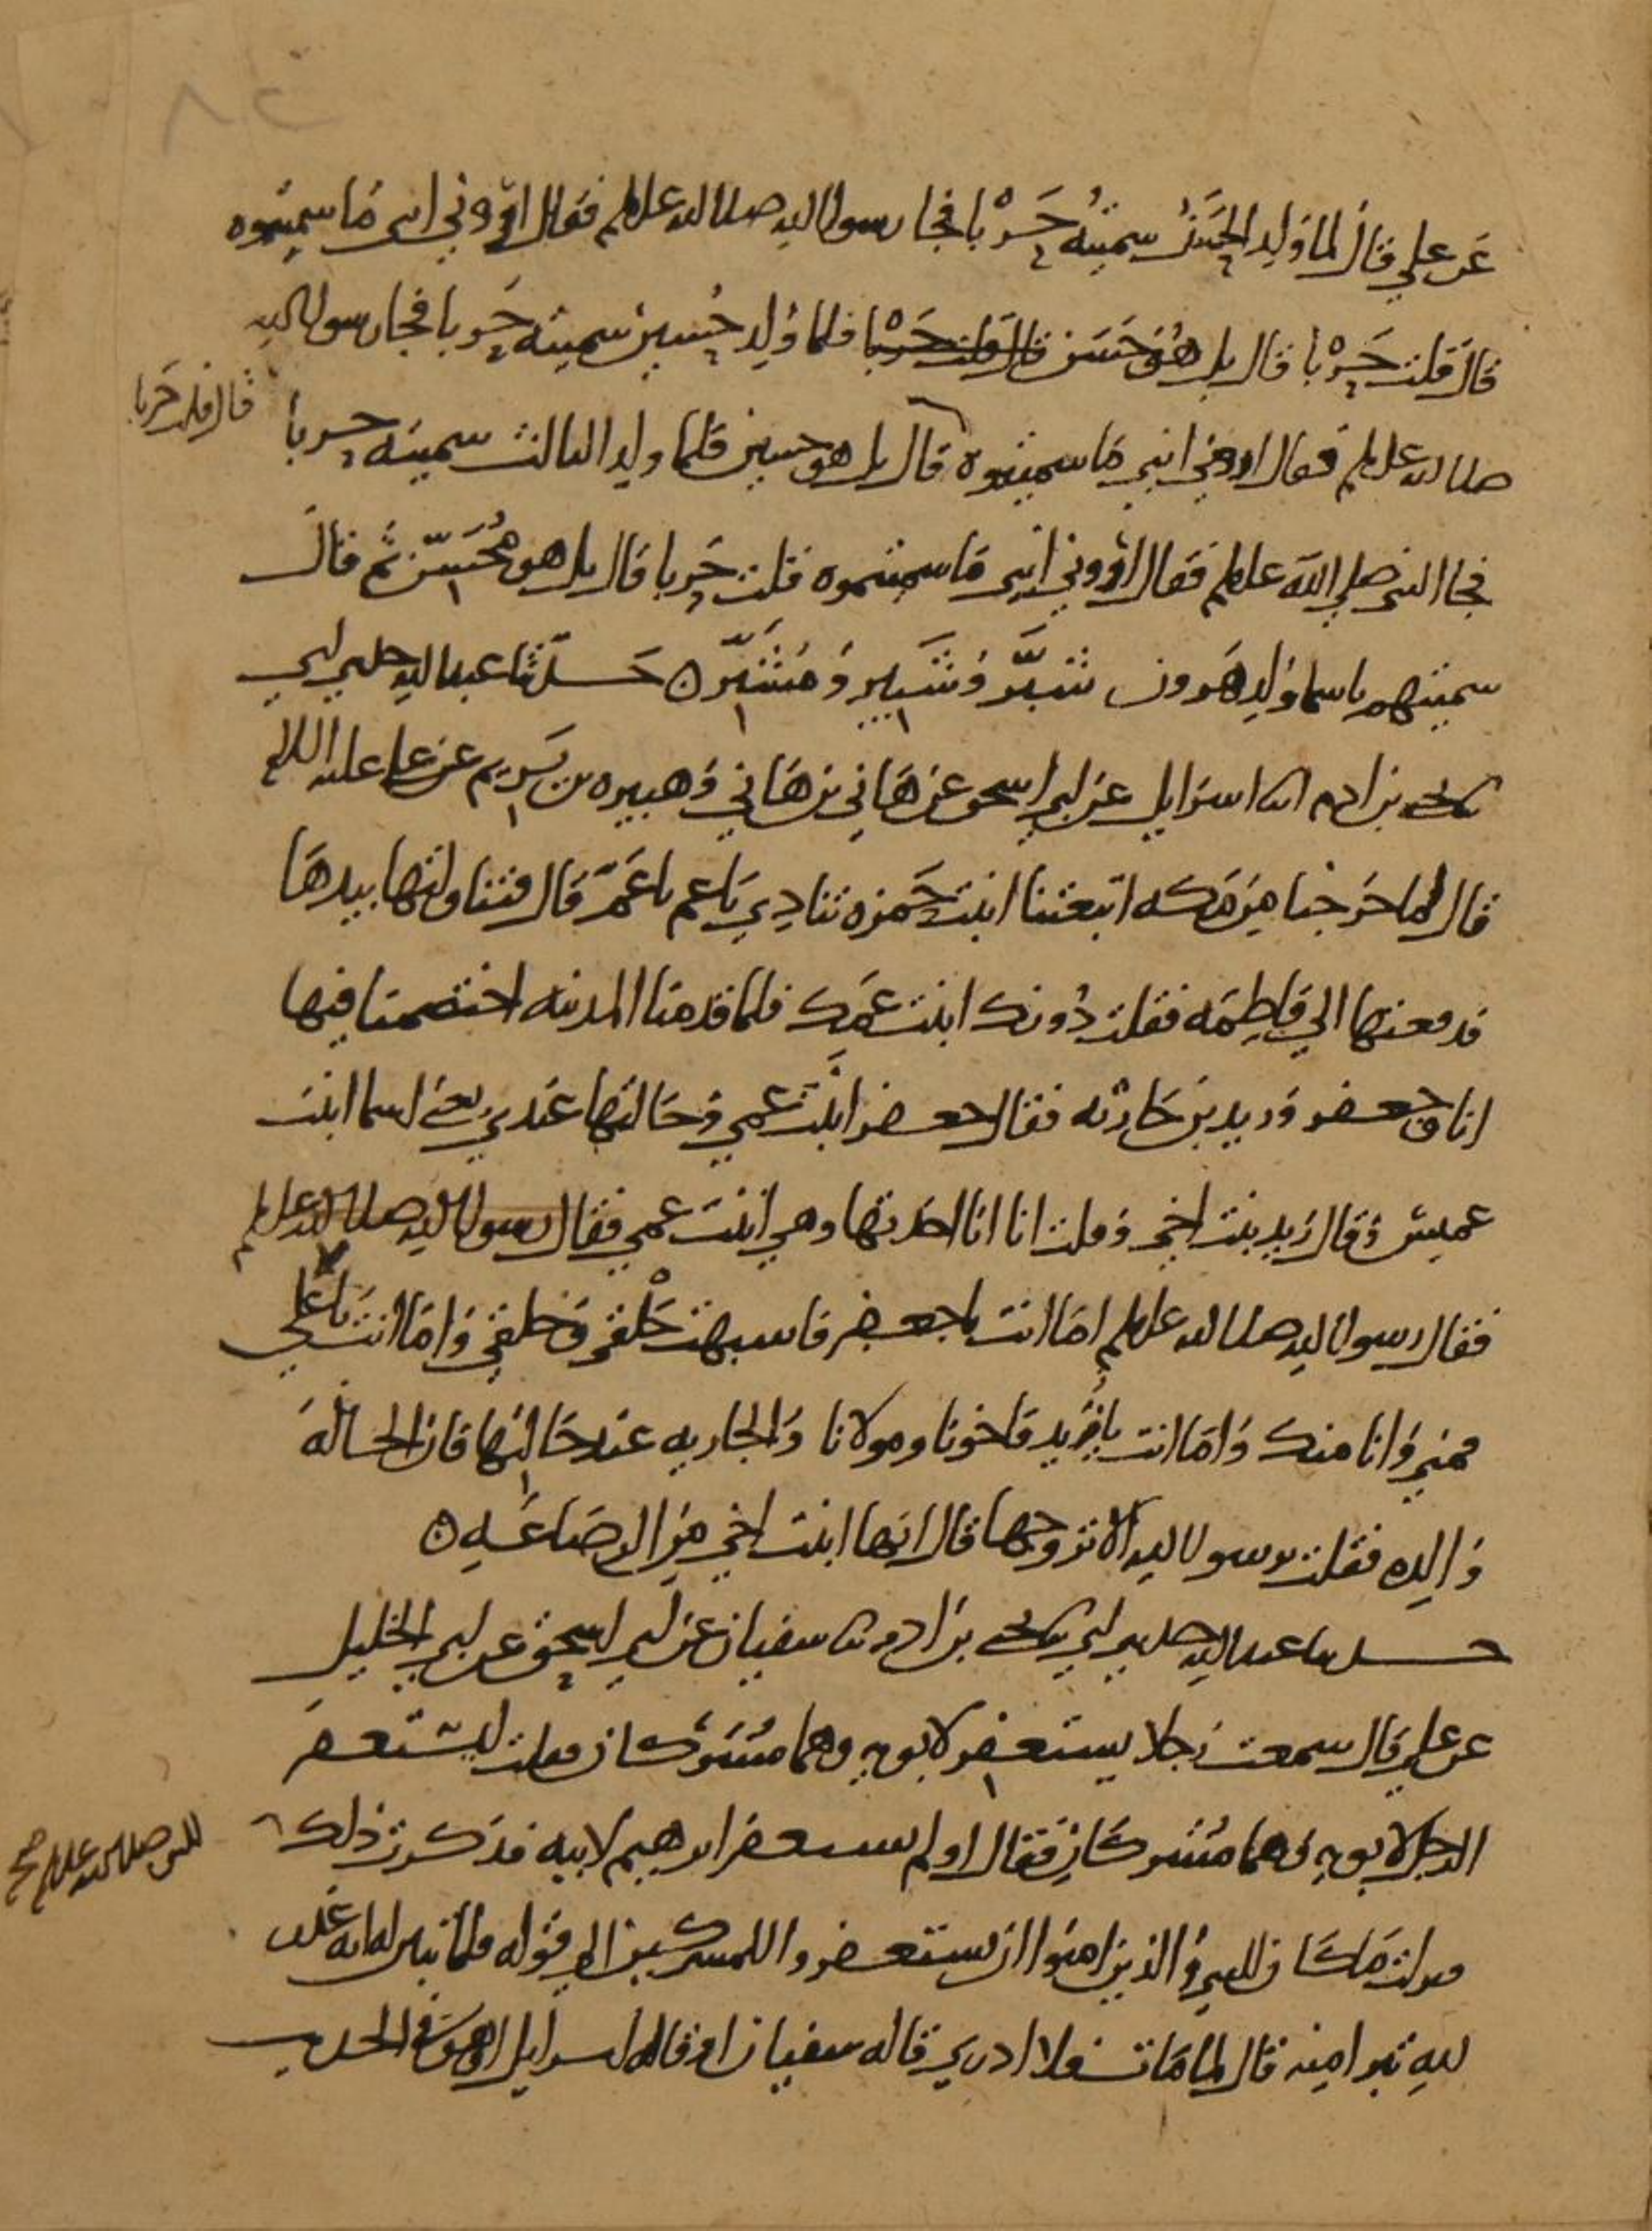 عن علي قال لما ولد الحسن سميته حربا فجا رسول الله صلى الله عليه وسلم فقال اروني ابني ما سميتموه
قال قلت حربا قال بل هو حسن قال قلت حربا فلما ولد حسين سميته حربا فجا رسول الله
صلى الله عليه وسلم فقال اروني ابني ما سميتموه قال بل هو حسين فلما ولد الثالث سميته حربا
قال قلت حربا
فجا النبي صلى الله عليه وسلم فقال اروني ابني ما سميتموه قلت حربا قال بل هو محسن ثم قال
سميتهم باسما ولد هرون شبر وشبير ومشبر ه حدثنا عبد الله حدثني ابي
نا يحيى بن ادم نا اسرايل عن ابي اسحق عن هاني بن هاني وهبيره بن يريم عن علي عليه السلام
قال لما خرجنا من مكه اتبعتنا ابنت حمزه تنادي يا عم يا عم قال فتناولتها بيدها
فدفعتها الي فاطمه فقلت دونك ابنت عمك فلما قدمنا المدينه اختصمنا فيها
انا وجعفر وزيد بن حارثه فقال جعفر ابنت عمي وخالتها عندي يعني اسما ابنت
عميس وقال زيد بنت اخي وقلت انا انا اخذتها وهي ابنت عمي فقال رسول الله صلى الله عليه وسلم
فقال رسول الله صلى الله عليه وسلم اما انت يا جعفر فاشبهت خلقي وخلقي واما انت يا علي
فمني وانا منك واما انت يا زيد فاخونا ومولانا والجاريه عند خالتها فان الخاله
والده فقلت يرسول الله الا تزوجها قال انها ابنت اخي من الرضاعه ه
حدثنا عبد الله حدثني ابي نا يحيى بن ادم نا سفيان عن ابي اسحق عن ابي الخليل
عن علي قال سمعت رجلا يستغفر لابويه وهما مشركان فقلت ليستغفر
الرجل لابويه وهما مشركان فقال اولم يستغفر ابرهيم لابيه فذكرت ذلك
للنبي صلى الله عليه وسلم صح
فنزلت ما كان للنبي والذين امنوا ان يستغفروا للمشركين الى قوله فلما تبين له انه عدو
لله تبرا منه قال لما مات فلا ادري قاله سفيان او قاله اسرايل او هو في الحديث